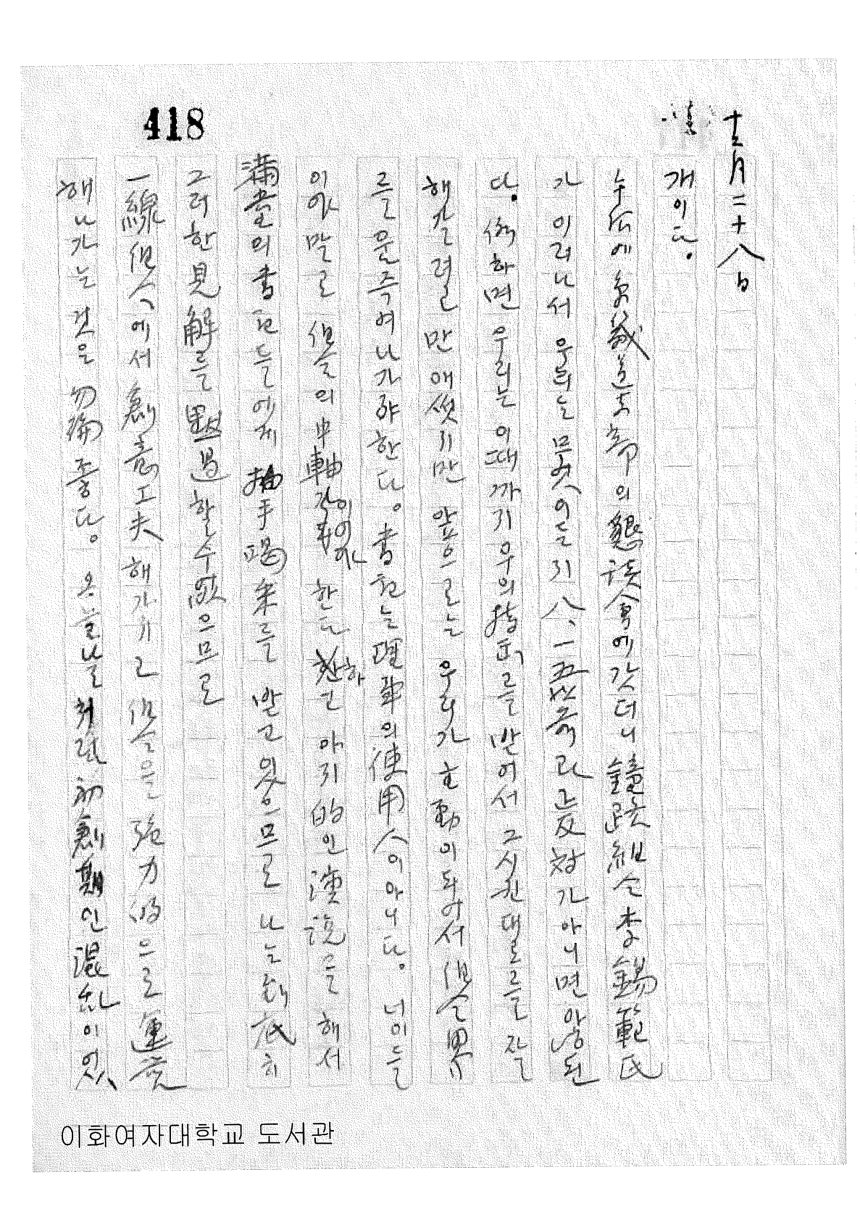 418
十二月二十八日
개이다.
午后에 京畿道支部의 懇談會에 갓더니 鐘路組合 李錫範氏
가 이러나서 우리는 무엇이든지 八、一五以前과 正反對가 아니면 않된
다. 하면 우리는 이때까지 우의 指ㅣ를 받어서 그 시킨대로를 잘
해갈려고만 애썻지만 앞으로는 우리가 主動이 되여서 組合界
를 움즉여 나가야 한다. 書記는 理事의 使用人이 아니다. 너이들
이야말로 組合의 中軸 이여야 한다 하고 야지的인 演說을 해서
滿堂의 書記들에게 拍手喝采를 받고 있으므로 나는 到底히
그러한 見解를 黙過할 수 없으므로
一線組合에서 創意工夫 해가지고 組合을 强力的으로 運營
해 나가는 것은 勿論 좋다. 오늘날처럼 初創期인 混乱이 있
이화여자대학교 도서관